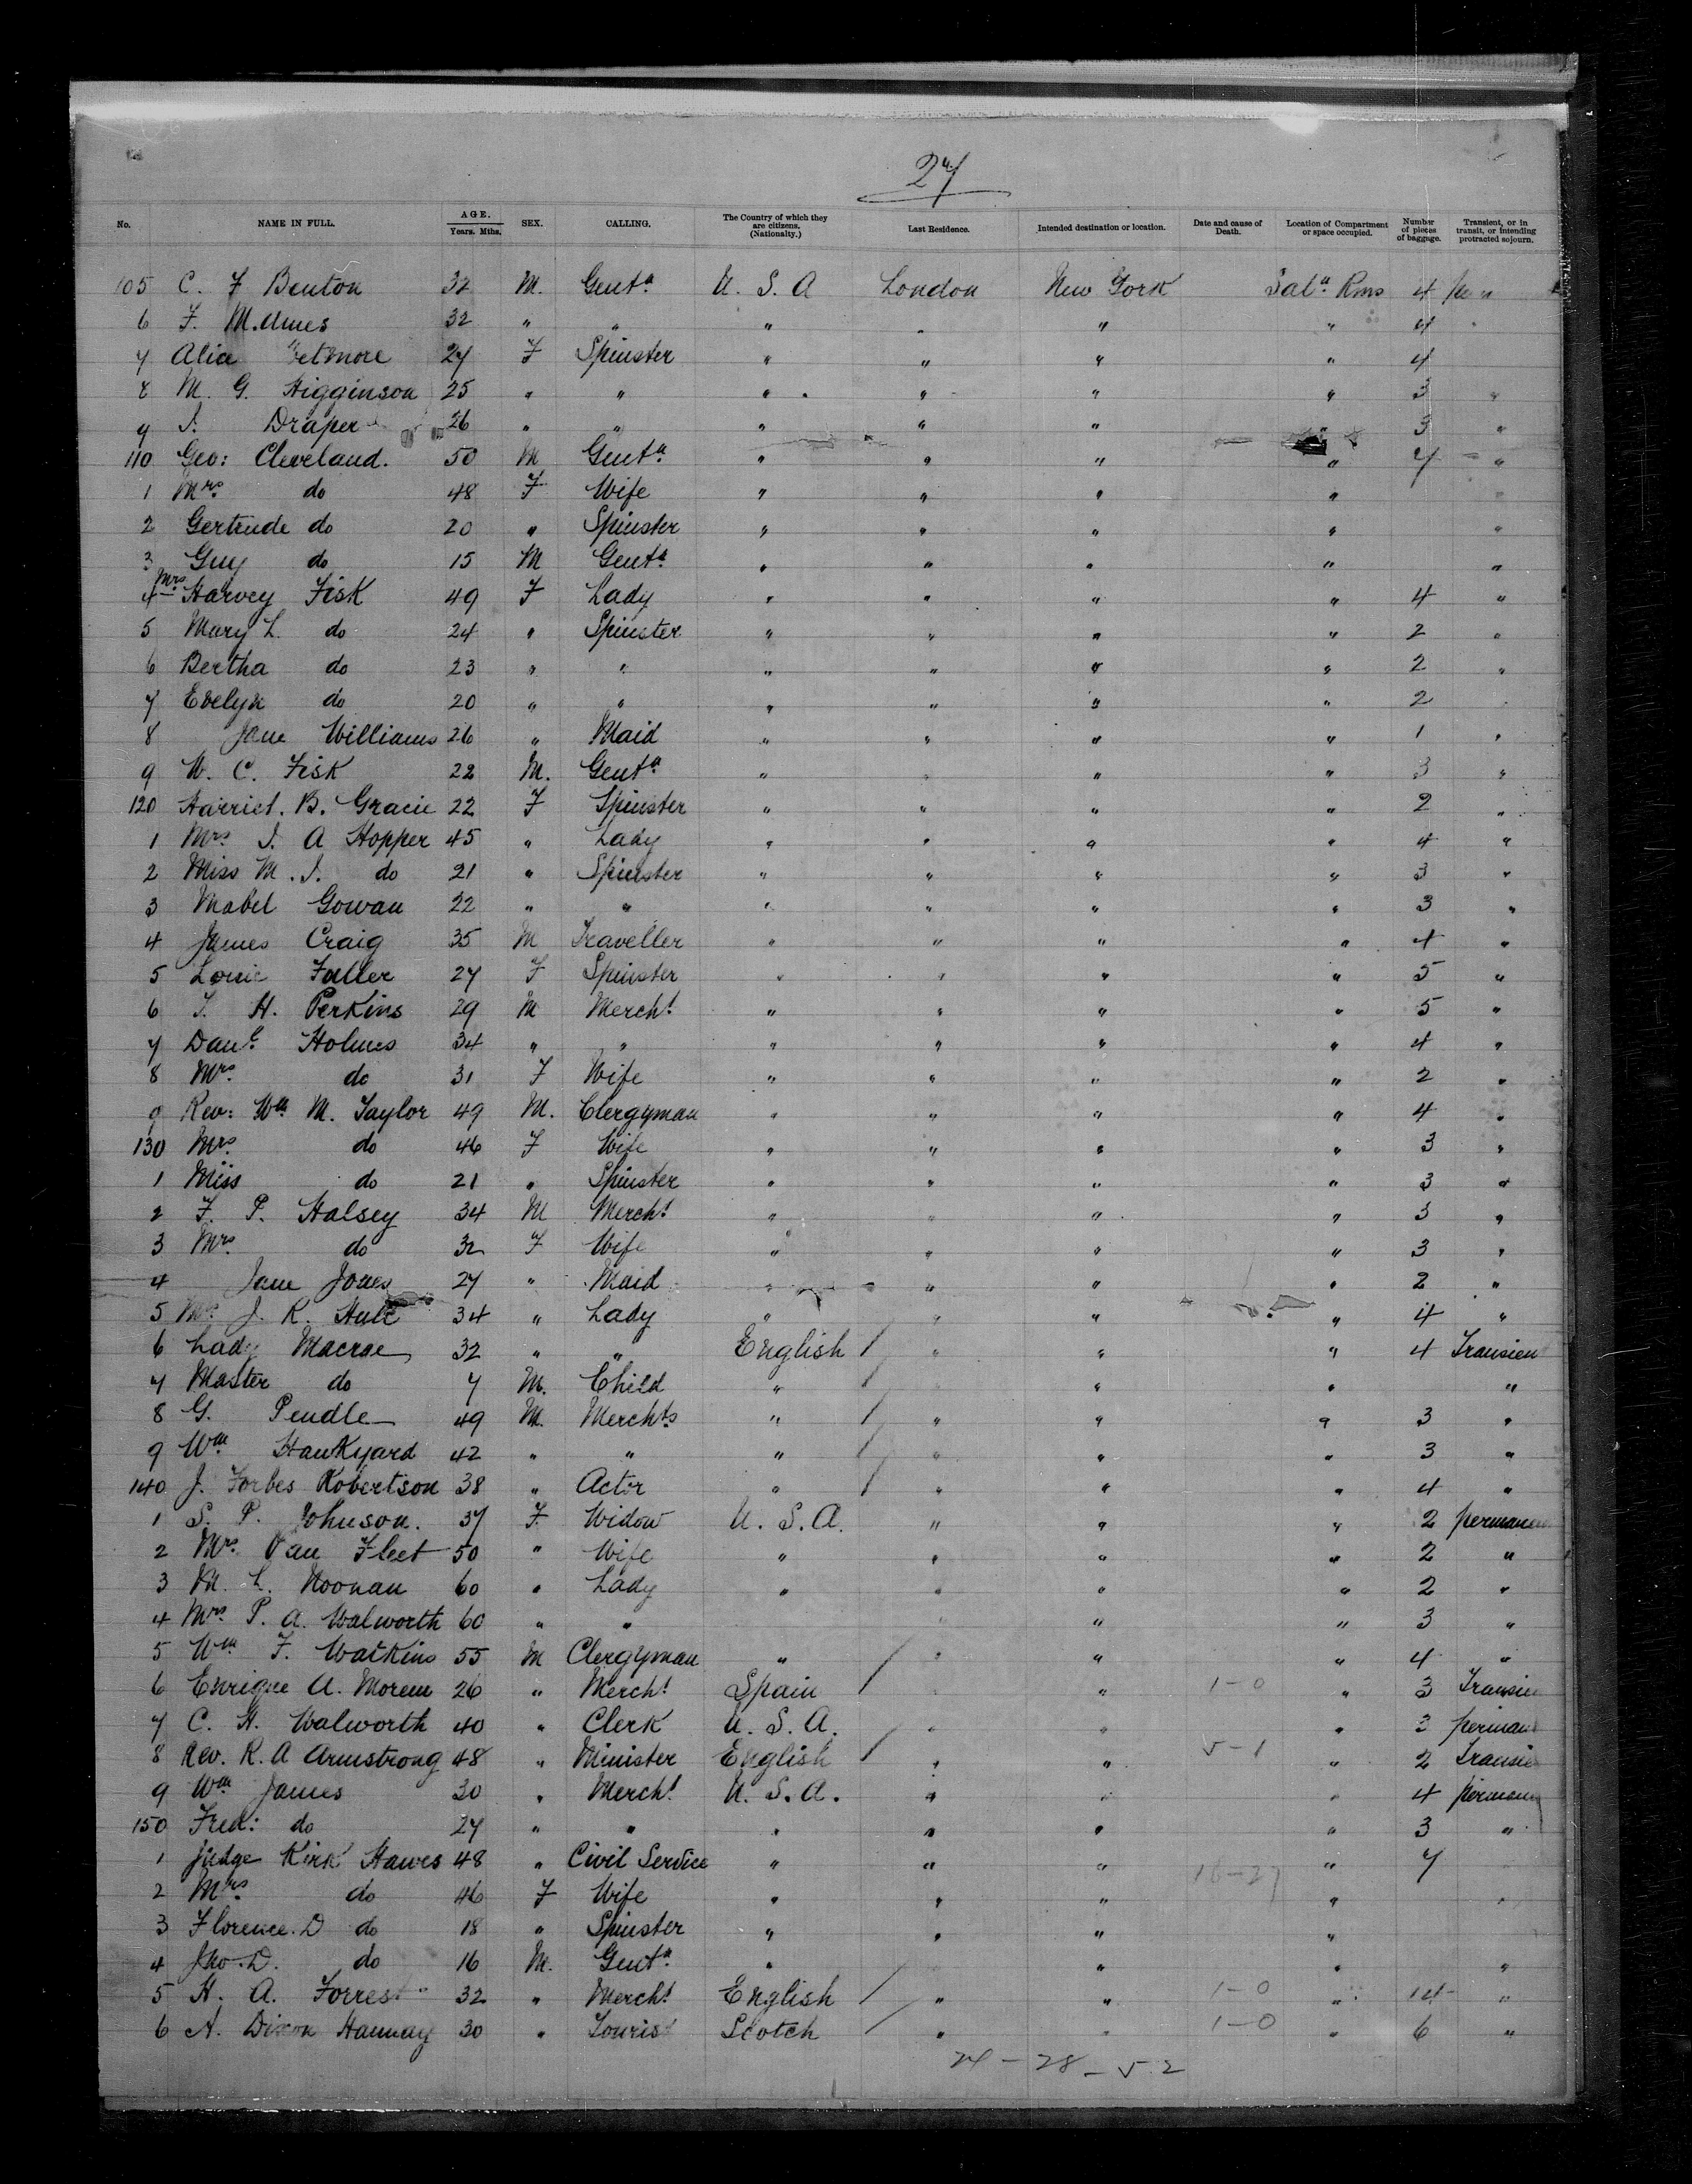 27
No. NAME IN FULL. AGE. Years. Mths. SEX. CALLING. The Country of which they are citizens. (Nationalty.) Last Residence. Intended destination or location. Date and cause of Death. Location of Compartment or space occupied. Number of pieces of baggage. Transient, or in transit, or intending protracted sojourn.
105 C. F Benton 32 M. Gentn U. S. A London New York Saln Rms 4
6 F. M. Ames 32 " " " " " " 4 "
7 Alice 27 F Spinster " " " " 4
8 M. G. Higginson 25 " " " " " " 3 "
9 Draper 26 " " " " " " 3 "
110 Geo: Cleveland. 50 M Gentn " " " " 7 "
1 Mrs do 48 F Wife " " " " "
2 Gertrude do 20 " Spinster " " " " "
3 Guy do 15 M Gentn " " " " "
4 Mrs Harvey Fisk 49 F Lady " " " " 4 "
5 Mary L. do 24 " Spinster " " " " 2 "
6 Bertha do 23 " " " " " " 2 "
7 Evelyn do 20 " " " " " " 2 "
8 Jane Williams 26 " Maid " " " " 1 "
9 W. C. Fisk 22 M. Gentn " " " " 3 "
120 Harriet. B. Gracie 22 F Spinster " " " " 2 "
1 Mrs I. A Hopper 45 " Lady " " " " 4 "
2 Miss M. I. do 21 " Spinster " " " " 3 "
3 Mabel Gowan 22 " " " " " " 3 "
4 James Craig 35 M Traveller " " " " 4 "
5 Louie Faller 27 F Spinster " " " " 5 "
6 T. H. Perkins 29 M Mercht " " " " 5 "
7 Danl. Holmes 34 " " " " " " 4 "
8 Mrs. do 31 F Wife " " " " 2 "
9 Rev: Wm M. Taylor 49 M. Clergyman " " " " 4 "
130 Mrs. do 46 F Wife " " " " 3 "
1 Miss do 21 " Spinster " " " " 3 "
2 F. P. Halsey 34 M Mercht " " " " 3 "
3 Mrs. do 32 F Wife " " " " 3 "
4 Jane Jones 27 " Maid " " " " 2 "
5 Mrs J. R. 34 " Lady " " " " 4 "
6 Lady Macrae 32 " " English / " " " 4 Transien
7 Master do 7 M. Child " / " " "
8 G. Pendle 49 M. Merchts " / " " " 3 "
9 Wm Hankyard 42 " " " / " " " 3 "
140 J. Forbes Robertson 38 " Actor " / " " " 4 "
1 S. P. Johnson. 37 F. Widow U. S. A. " " " 2 permanen
2 Mrs. Van Fleet 50 " Wife " " " " 2 "
3 M. L. Noonan 60 " Lady " " " " 2 "
4 Mrs P. A. Walworth 60 " " " " " 3 "
5 Wm F. Watkins 55 M Clergyman " / " " " 4 "
6 Enrique A. Morem 26 " Mercht Spain / " 1-0 " 3 Transien
7 C. H. Walworth 40 " Clerk U. S. A. / " " " 3 perman
8 Rev. R. A Armstrong 48 " Minister English / " " 5-1 " 2 Transie
9 Wm James 30 " Mercht U. S. A. " " " 4 permann
150 Fred: do 27 " " " " " " 3 "
1 Judge Kirk Hawes 48 " Civil Service " " " 16-27 " 7
2 Mrs. do 46 F Wife " " " " "
3 Florence. D do 18 " Spinster " " " "
4 Jno. D. do 16 M. Gentn " " " "
5 H. A. Forrest 32 " Mercht English / " " 1-0 " 14 "
6 A. Dixon Hannay 30 " Tourist Scotch / " " 1-0 " 6 "
24 - 28 - 5.2